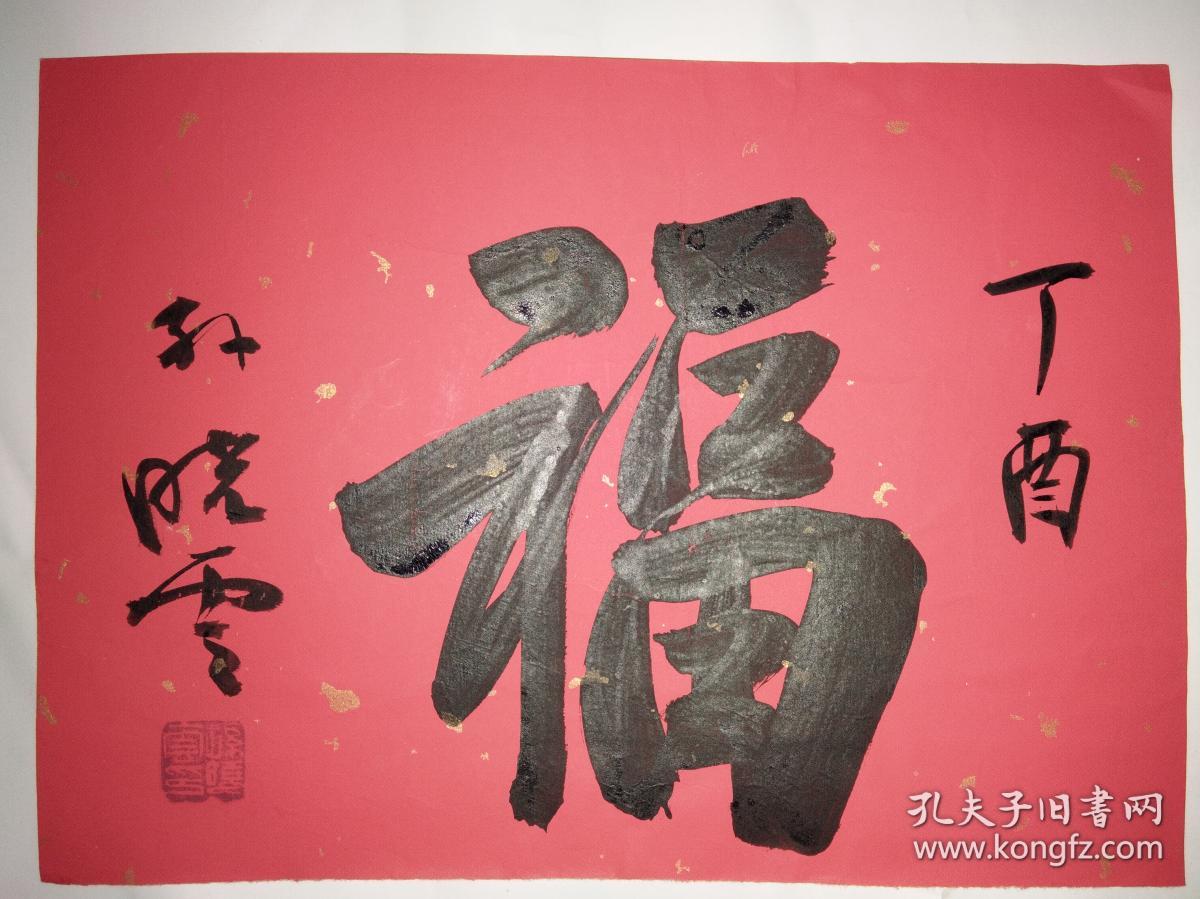 丁酉
福
孙晓云
孔夫子旧書网
www.kongfz.com